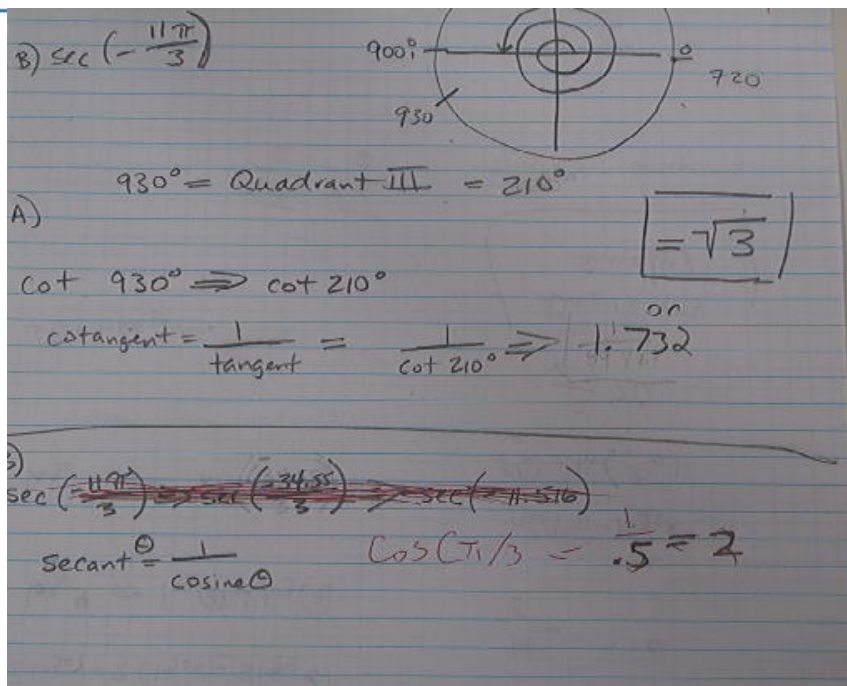 B) sec (- 11π/3)
900°
0
720
930
930° = Quadrant III = 210°
A)
= √3
cot 930° ⇒ cot 210°
or
cotangent = 1/tangent = 1/cot 210° ⇒ 1.732
sec (11π/3) ⇒ sec (34.55/3) ⇒ sec (-11.516)
secant θ = 1/cosine θ
Cos(π/3 = 1/.5 = 2